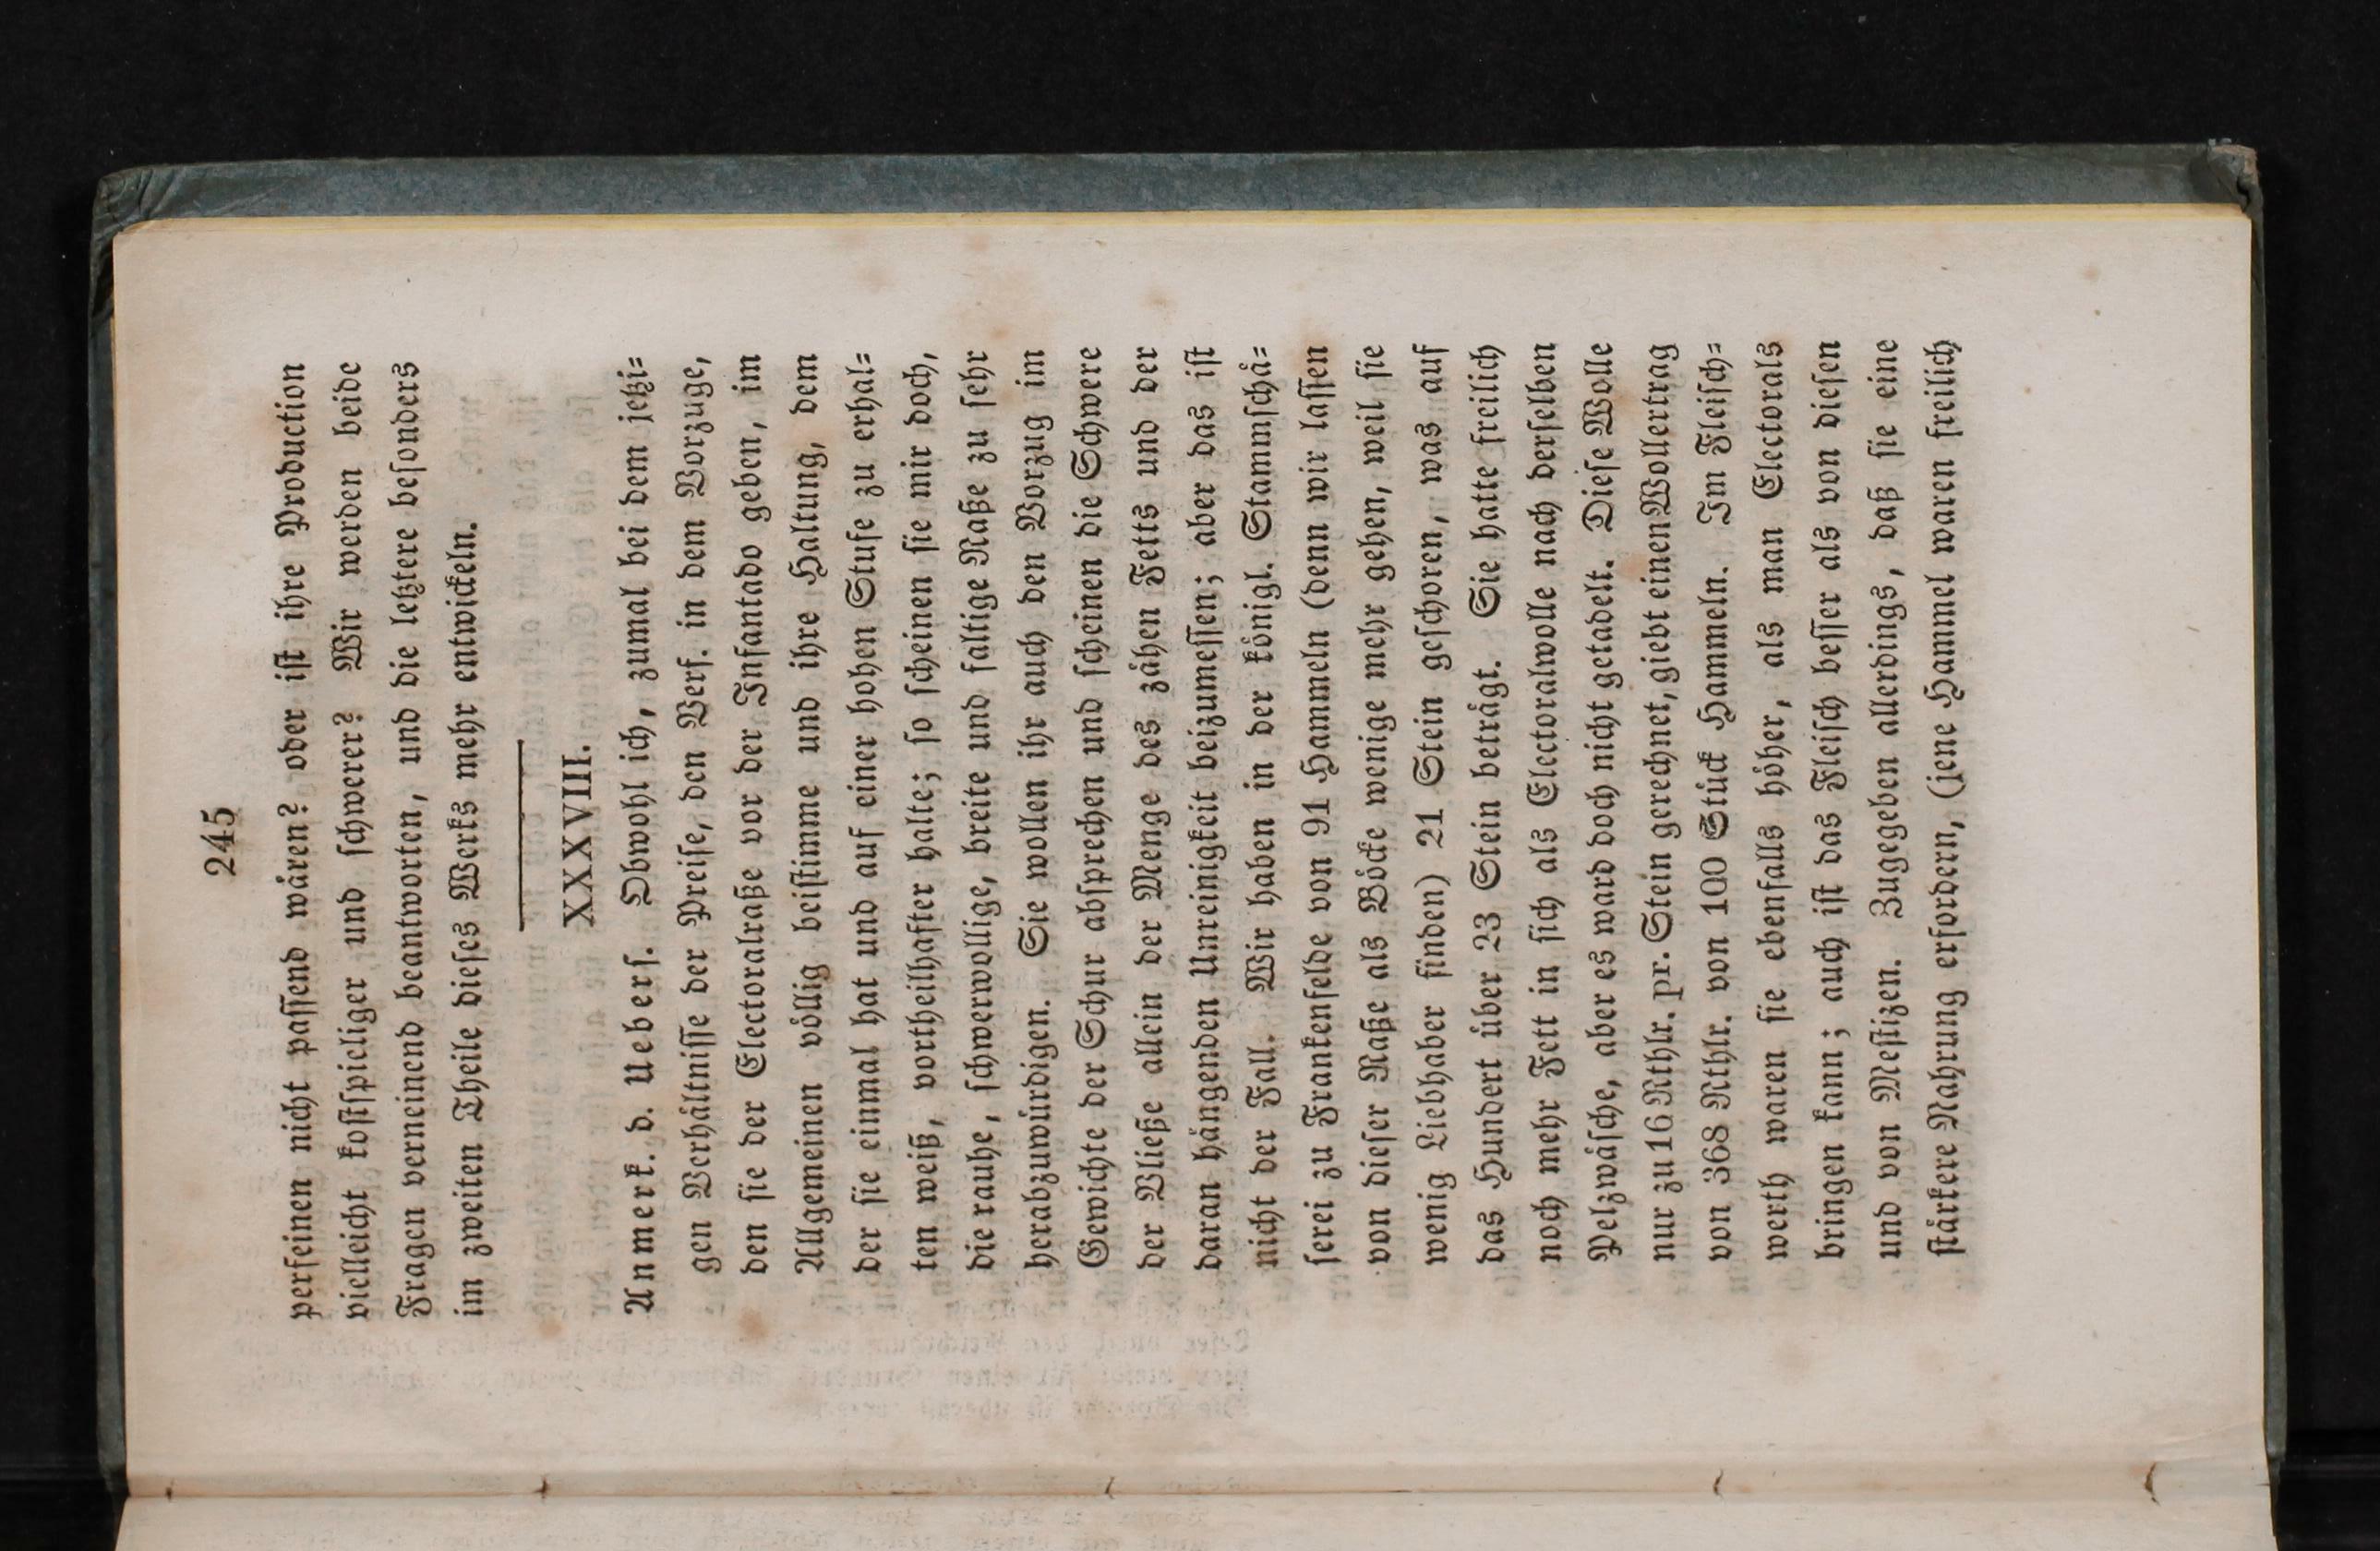 245
perſeinen nicht paſſend wären? oder iſt ihre Production
vielleicht koſtſpieliger und ſchwerer? Wir werden beide
Fragen verneinend beantworten, und die letztere beſonders
im zweiten Theile dieſes Werks mehr entwickeln.
XXXVIII.
Anmerk. d. Ueberſ. Obwohl ich, zumal bei dem jetzi=
gen Verhältniſſe der Preiſe, den Verf. in dem Vorzuge,
den ſie der Electoralraße vor der Infantado geben, im
Allgemeinen völlig beiſtimme und ihre Haltung, dem
der ſie einmal hat und auf einer hohen Stufe zu erhal=
ten weiß, vortheilhafter halte; ſo ſcheinen ſie mir doch,
die rauhe, ſchwerwollige, breite und faltige Raße zu ſehr
herabzuwürdigen. Sie wollen ihr auch den Vorzug im
Gewichte der Schur abſprechen und ſcheinen die Schwere
der Vließe allein der Menge des zähen Fetts und der
daran hängenden Unreinigkeit beizumeſſen; aber das iſt
nicht der Fall. Wir haben in der königl. Stammſchä=
ferei zu Frankenfelde von 91 Hammeln (denn wir laſſen
von dieſer Raße als Böcke wenige mehr gehen, weil ſie
wenig Liebhaber finden) 21 Stein geſchoren, was auf
das Hundert über 23 Stein beträgt. Sie hatte freilich
noch mehr Fett in ſich als Electoralwolle nach derſelben
Pelzwäſche, aber es ward doch nicht getadelt. Dieſe Wolle
nur zu 16 Rthlr. pr. Stein gerechnet, giebt einen Wollertrag
von 368 Rthlr. von 100 Stück Hammeln. Im Fleiſch=
werth waren ſie ebenfalls höher, als man Electorals
bringen kann; auch iſt das Fleiſch beſſer als von dieſen
und von Meſtizen. Zugegeben allerdings, daß ſie eine
ſtärkere Nahrung erfordern, (jene Hammel waren freilich